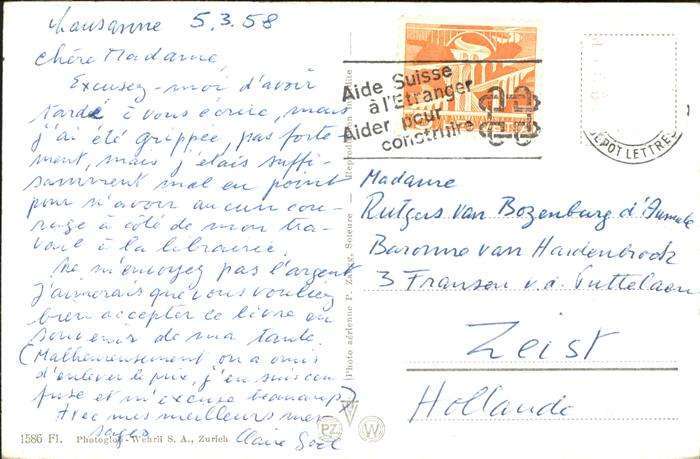 Lausanne 5.3.58
chère Madame,
Excusez-moi d'avoir
tardé à vous écrire, mais
j'ai été grippée, pas forte-
ment, mais j'étais suffi-
samment mal en point
pour n'avoir aucun cou-
rage à côté de mon tra-
vail à la librairie.
Ne m'envoyez pas l'argent
j'aimerais que vous vouliez
bien accepter ce livre en
souvenir de ma tante.
(Malheureusement on a omis
d'enlever le prix, j'en suis con-
fuse et m'excuse beaucoup)
Avec mes meilleurs mes-
sages Claire
1586 Fl. Photoglob-Wehrli S. A., Zurich
(Photo aérienne P. Zaugg, Soleure —
Aide Suisse
à l'Etranger
Aider pour
construire
DEPOT LETTRES
PZ W
Madame
Rutgers van Rozenburg d'Aumale
Baronne van Hardenbroek
3 Fransen v.d. Puttelaan
Zeist
Hollande